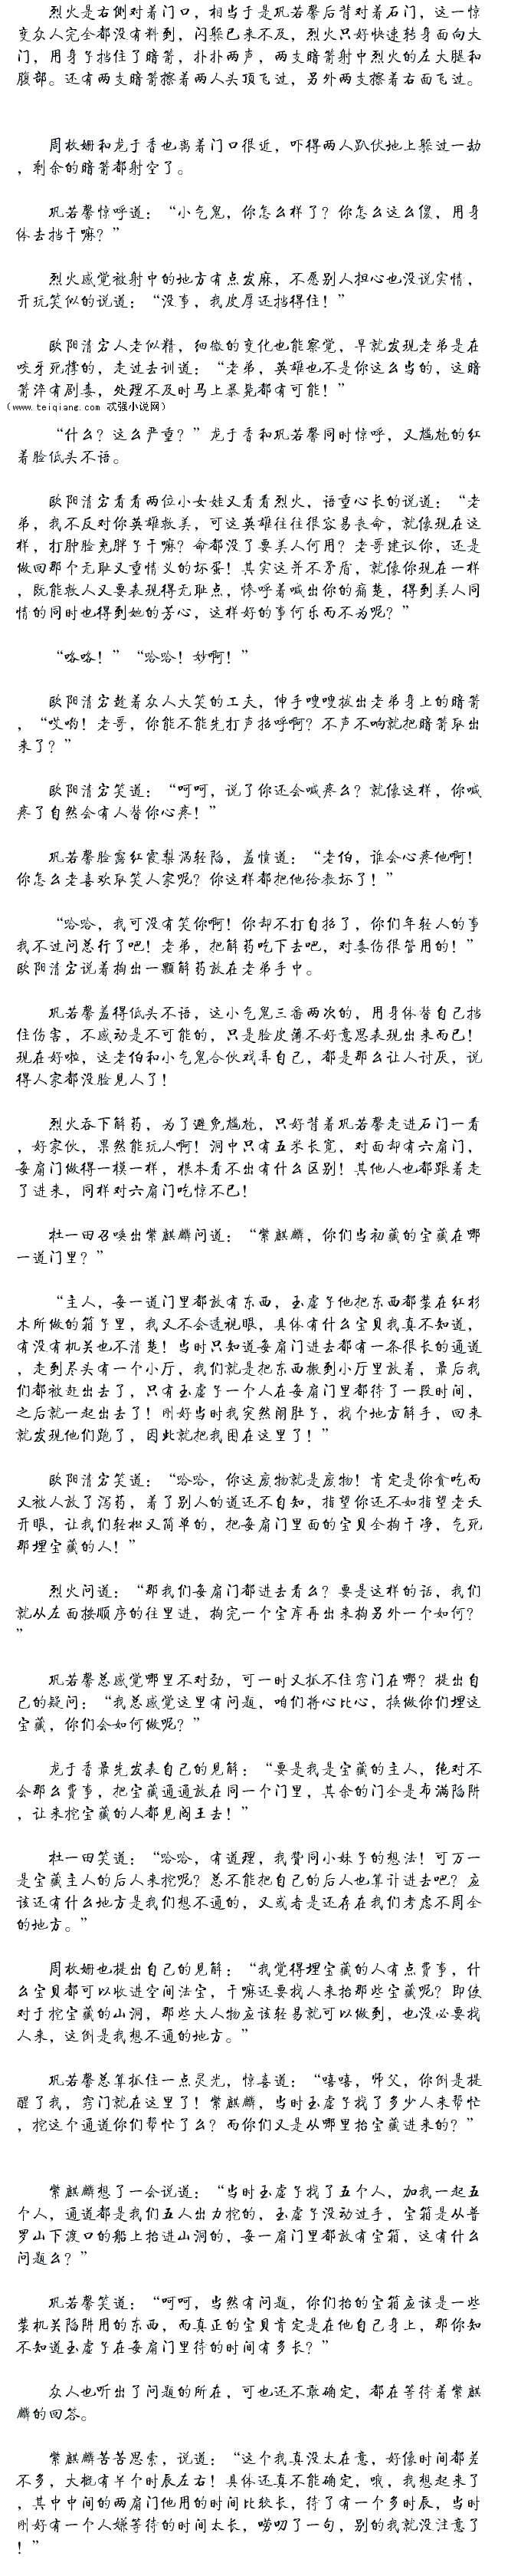 烈火是右侧对着门口，相当于是巩若馨后背对着石门，这一惊
变众人完全都没有料到，闪躲已来不及，烈火只好快速转身面向大
门，用身子挡住了暗箭，扑扑两声，两支暗箭射中烈火的左大腿和
腹部。还有两支暗箭擦着两人头顶飞过，另外两支擦着右面飞过。
周枚姗和龙于香也离着门口很近，吓得两人趴伏地上躲过一劫
，剩余的暗箭都射空了。
巩若馨惊呼道：“小气鬼，你怎么样了？你怎么这么傻，用身
体去挡干嘛？”
烈火感觉被射中的地方有点发麻，不愿别人担心也没说实情，
开玩笑似的说道：“没事，我皮厚还挡得住！”
欧阳清宕人老似精，细微的变化也能察觉，早就发现老弟是在
咬牙死撑的，走过去训道：“老弟，英雄也不是你这么当的，这暗
箭淬有剧毒，处理不及时马上暴毙都有可能！”
（www.teiqiang.com 忒强小说网）
“什么？这么严重？”龙于香和巩若馨同时惊呼，又尴尬的红
着脸低头不语。
欧阳清宕看看两位小女娃又看看烈火，语重心长的说道：“老
弟，我不反对你英雄救美，可这英雄往往很容易丧命，就像现在这
样，打肿脸充胖子干嘛？命都没了要美人何用？老哥建议你，还是
做回那个无耻又重情义的坏蛋！其实这并不矛盾，就像你现在一样
，既能救人又要表现得无耻点，惨呼着喊出你的痛楚，得到美人同
情的同时也得到她的芳心，这样好的事何乐而不为呢？”
“咯咯！”“哈哈！妙啊！”
欧阳清宕趁着众人大笑的工夫，伸手嗖嗖拔出老弟身上的暗箭
，“哎哟！老哥，你能不能先打声招呼啊？不声不响就把暗箭取出
来了？”
欧阳清宕笑道：“呵呵，说了你还会喊疼么？就像这样，你喊
疼了自然会有人替你心疼！”
巩若馨脸露红霞梨涡轻陷，羞愤道：“老伯，谁会心疼他啊！
你怎么老喜欢取笑人家呢？你这样都把他给教坏了！”
“哈哈，我可没有笑你啊！你却不打自招了，你们年轻人的事
我不过问总行了吧！老弟，把解药吃下去吧，对毒伤很管用的！”
欧阳清宕说着掏出一颗解药放在老弟手中。
巩若馨羞得低头不语，这小气鬼三番两次的，用身体替自己挡
住伤害，不感动是不可能的，只是脸皮薄不好意思表现出来而已！
现在好啦，这老伯和小气鬼合伙戏弄自己，都是那么让人讨厌，说
得人家都没脸见人了！
烈火吞下解药，为了避免尴尬，只好背着巩若馨走进石门一看
，好家伙，果然能玩人啊！洞中只有五米长宽，对面却有六扇门，
每扇门做得一模一样，根本看不出有什么区别！其他人也都跟着走
了进来，同样对六扇门吃惊不已！
杜一田召唤出紫麒麟问道：“紫麒麟，你们当初藏的宝藏在哪
一道门里？”
“主人，每一道门里都放有东西，玉虚子他把东西都装在红杉
木所做的箱子里，我又不会透视眼，具体有什么宝贝我真不知道，
有没有机关也不清楚！当时只知道每扇门进去都有一条很长的通道
，走到尽头有一个小厅，我们就是把东西搬到小厅里放着，最后我
们都被赶出去了，只有玉虚子一个人在每扇门里都待了一段时间，
之后就一起出去了！刚好当时我突然闹肚子，找个地方解手，回来
就发现他们跑了，因此就把我困在这里了！”
欧阳清宕笑道：“哈哈，你这废物就是废物！肯定是你贪吃而
又被人放了泻药，着了别人的道还不自知，指望你还不如指望老天
开眼，让我们轻松又简单的，把每扇门里面的宝贝全掏干净，气死
那埋宝藏的人！”
烈火问道：“那我们每扇门都进去看么？要是这样的话，我们
就从左面按顺序的往里进，掏完一个宝库再出来掏另外一个如何？
”
巩若馨总感觉哪里不对劲，可一时又抓不住窍门在哪？提出自
己的疑问：“我总感觉这里有问题，咱们将心比心，换做你们埋这
宝藏，你们会如何做呢？”
龙于香最先发表自己的见解：“要是我是宝藏的主人，绝对不
会那么费事，把宝藏通通放在同一个门里，其余的门全是布满陷阱
，让来挖宝藏的人都见阎王去！”
杜一田笑道：“哈哈，有道理，我赞同小妹子的想法！可万一
是宝藏主人的后人来挖呢？总不能把自己的后人也算计进去吧？应
该还有什么地方是我们想不通的，又或者是还存在我们考虑不周全
的地方。”
周枚姗也提出自己的见解：“我觉得埋宝藏的人有点费事，什
么宝贝都可以收进空间法宝，干嘛还要找人来抬那些宝藏呢？即使
对于挖宝藏的山洞，那些大人物应该轻易就可以做到，也没必要找
人来，这倒是我想不通的地方。”
巩若馨总算抓住一点灵光，惊喜道：“嘻嘻，师父，你倒是提
醒了我，窍门就在这里了！紫麒麟，当时玉虚子找了多少人来帮忙
，挖这个通道你们帮忙了么？而你们又是从哪里抬宝藏进来的？”
紫麒麟想了一会说道：“当时玉虚子找了五个人，加我一起五
个人，通道都是我们五人出力挖的，玉虚子没动过手，宝箱是从普
罗山下渡口的船上抬进山洞的，每一扇门里都放有宝箱，这有什么
问题么？”
巩若馨笑道：“呵呵，当然有问题，你们抬的宝箱应该是一些
装机关陷阱用的东西，而真正的宝贝肯定是在他自己身上，那你知
不知道玉虚子在每扇门里待的时间有多长？”
众人也听出了问题的所在，可也还不敢确定，都在等待着紫麒
麟的回答。
紫麒麟苦苦思索，说道：“这个我真没太在意，好像时间都差
不多，大概有半个时辰左右！具体还真不能确定，哦，我想起来了
，其中中间的两扇门他用的时间比较长，待了有一个多时辰，当时
刚好有一个人嫌等待的时间太长，唠叨了一句，别的我就没注意了
！”